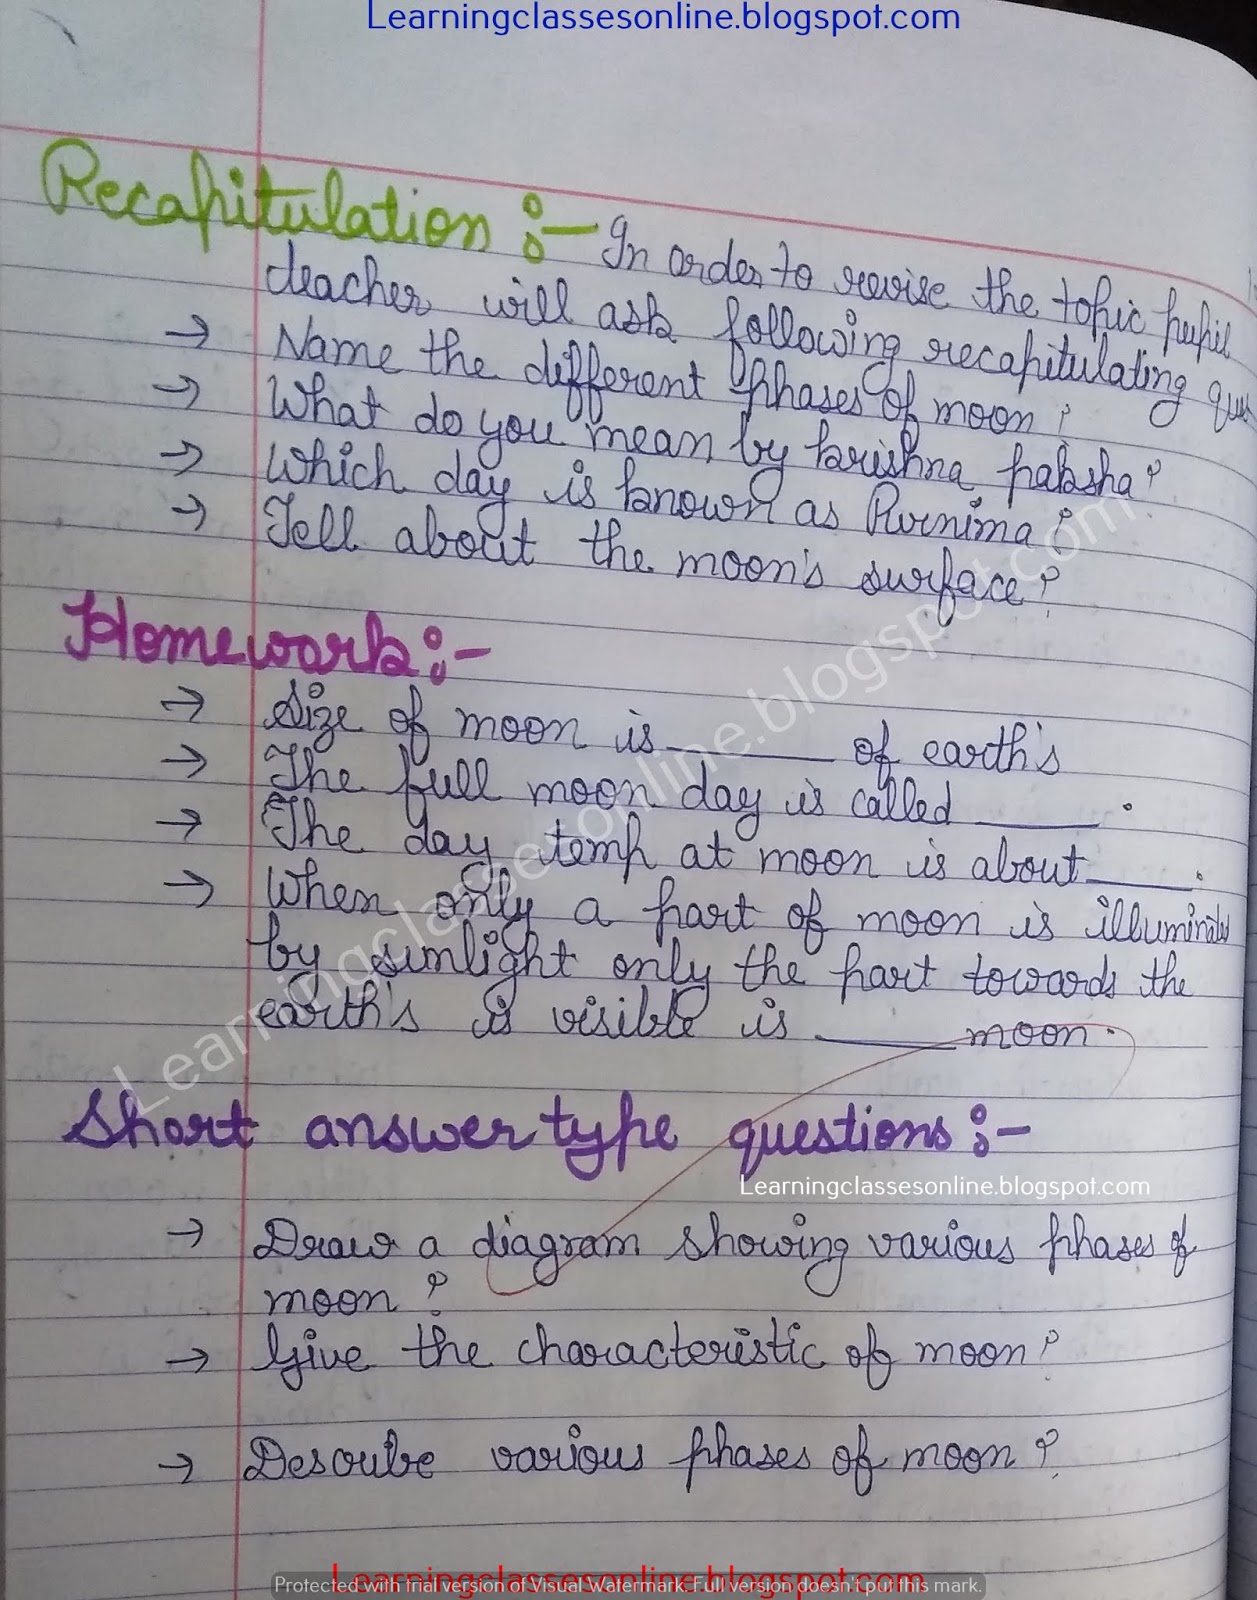 Learningclassesonline.blogspot.com
Recapitulation :- In order to revise the topic pupil
teacher will ask following recapitulating ques
→ Name the different phases of moon?
→ What do you mean by krishna paksha?
→ Which day is known as Purnima?
→ Tell about the moon's surface?
Homework:-
→ Size of moon is ______ of earth's
→ The full moon day is called ______.
→ The day temp at moon is about ______.
→ When only a part of moon is illuminated
by sunlight only the part towards the
earth's is visible is ______ moon.
Short answer type questions:-
Learningclassesonline.blogspot.com
→ Draw a diagram showing various phases of
moon?
→ Give the characteristic of moon?
→ Describe various phases of moon?
Learningclassesonline.blogspot.com
Learningclassesonline.blogspot.com
Protected with trial version of Visual Watermark. Full version doesn't put this mark.